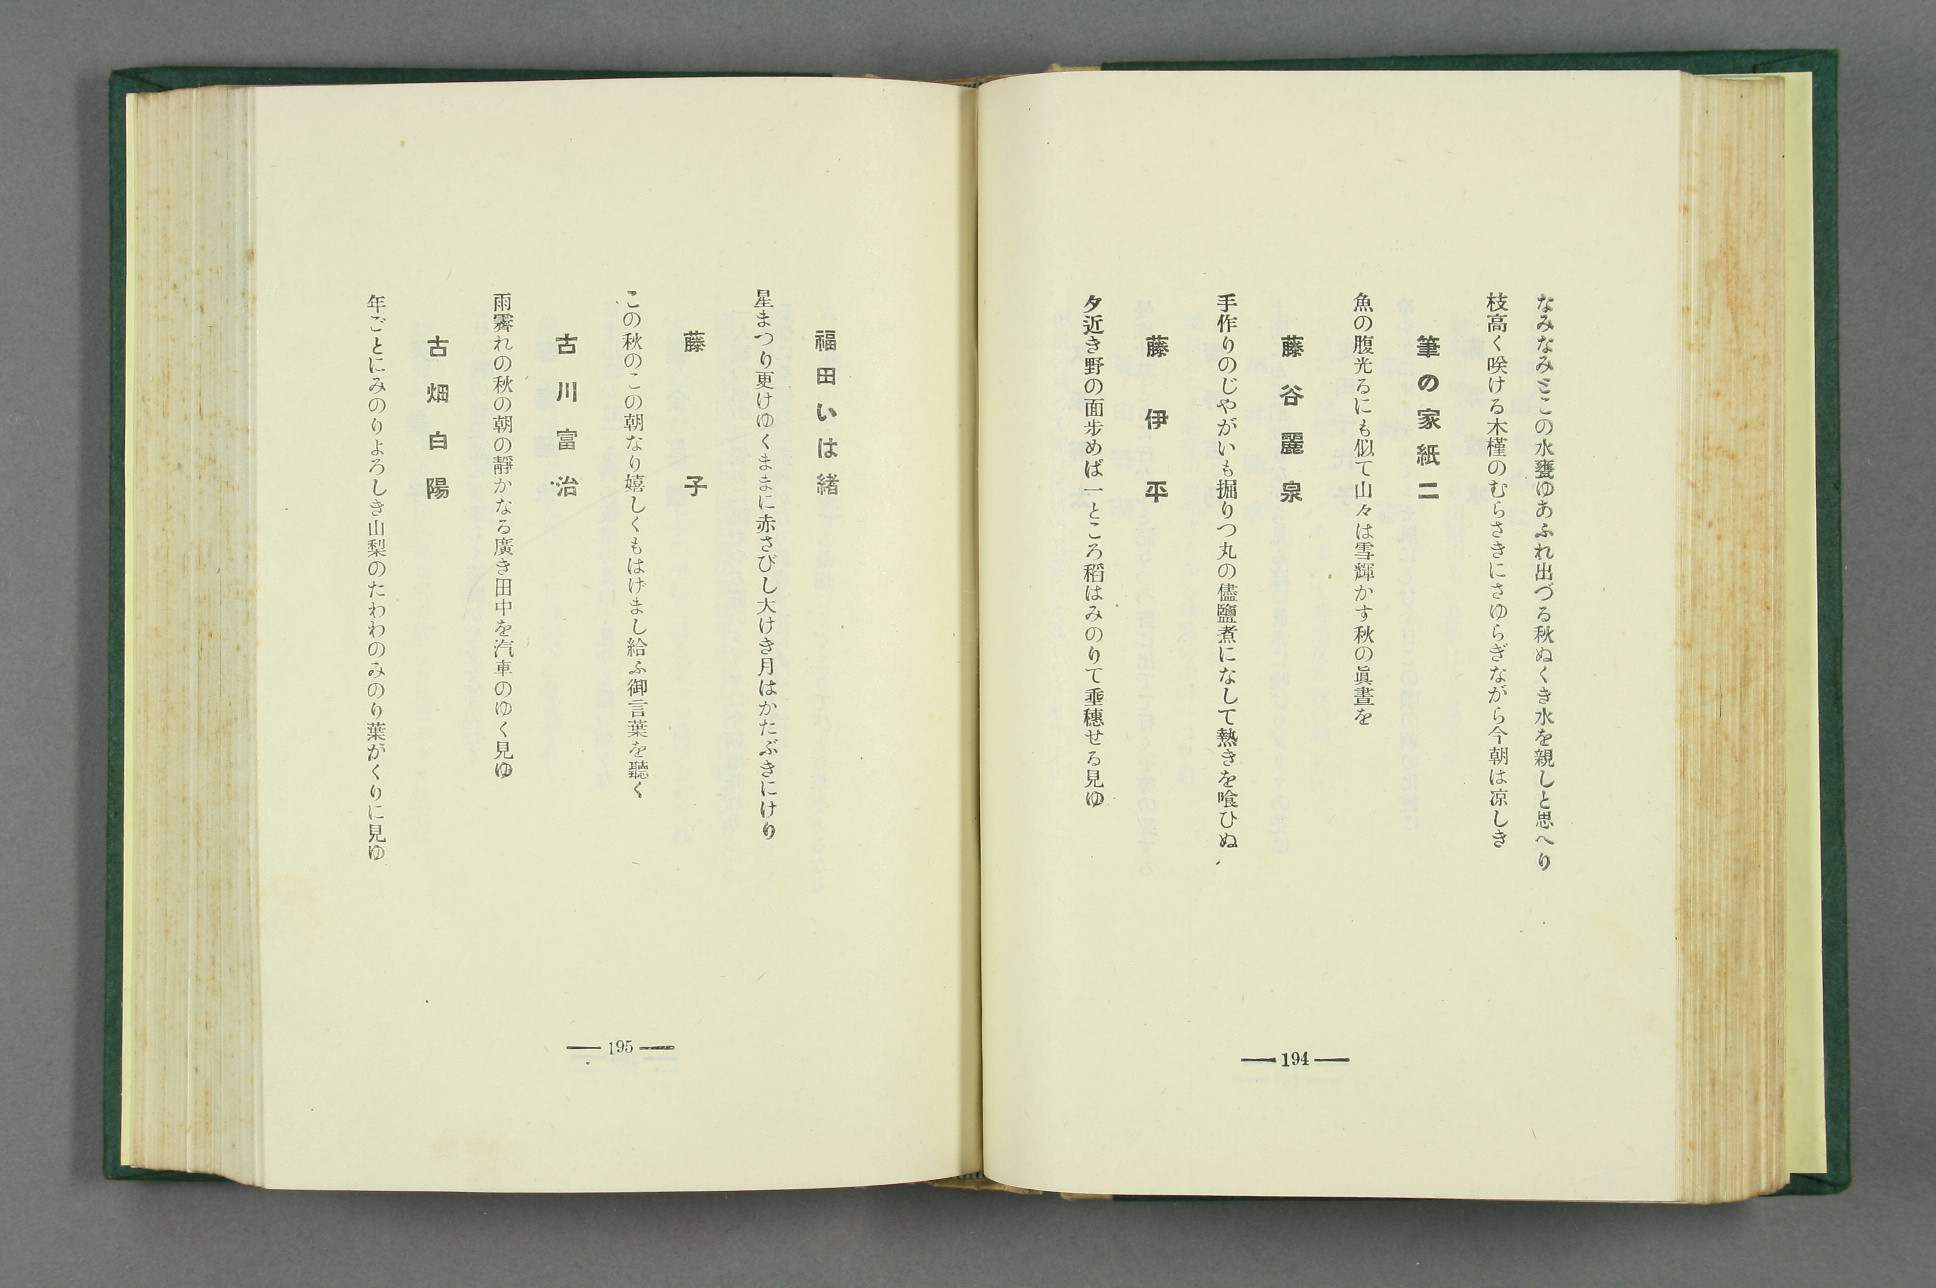 なみなみとこの水甕ゆあふれ出づる秋ぬくき水を親しと思へり
枝高く咲ける木槿のむらさきにさゆらぎながら今朝は凉しき
筆の家紙二
魚の腹光るにも似て山々は雪輝かす秋の眞晝を
藤谷麗泉
手作りのじやがいも掘りつ丸の儘鹽煮になして熱きを喰ひぬ
藤伊平
夕近き野の面歩めば一ところ稻はみのりて垂穗せる見ゆ
194
福田いは緒
星まつり更けゆくままに赤さびし大けき月はかたぶきにけり
藤子
この秋のこの朝なり嬉しくもはげまし給ふ御言葉を聽く
古川富治
雨霽れの秋の朝の靜かなる廣き田中を汽車のゆく見ゆ
古畑白陽
年ごとにみのりよろしき山梨のたわわのみのり葉がくりに見ゆ
195